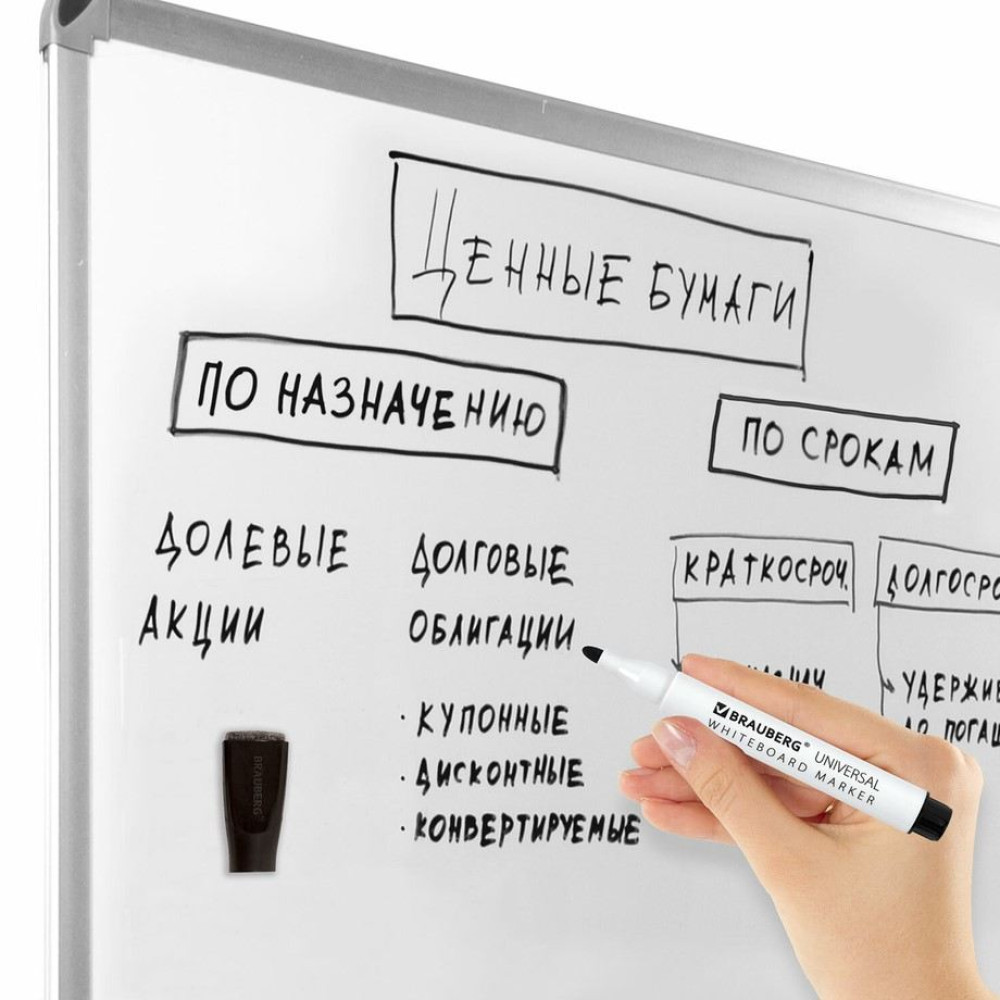 ЦЕННЫЕ БУМАГИ
ПО НАЗНАЧЕНИЮ
ПО СРОКАМ
ДОЛЕВЫЕ
АКЦИИ
ДОЛГОВЫЕ
ОБЛИГАЦИИ
· КУПОННЫЕ
· ДИСКОНТНЫЕ
· КОНВЕРТИРУЕМЫЕ
КРАТКОСРОЧ.
ДОЛГОСРО
УДЕРЖИВ
ДО ПОГАШ
BRAUBERG® UNIVERSAL
WHITEBOARD MARKER
BRAUBERG